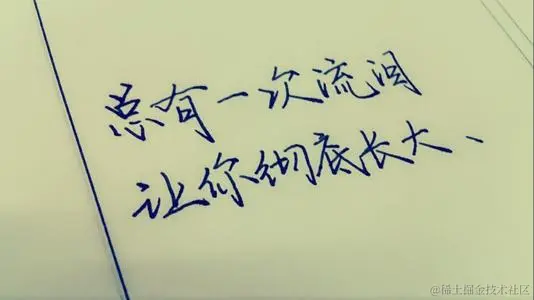 总有一次流泪
让你彻底长大、
@稀土掘金技术社区